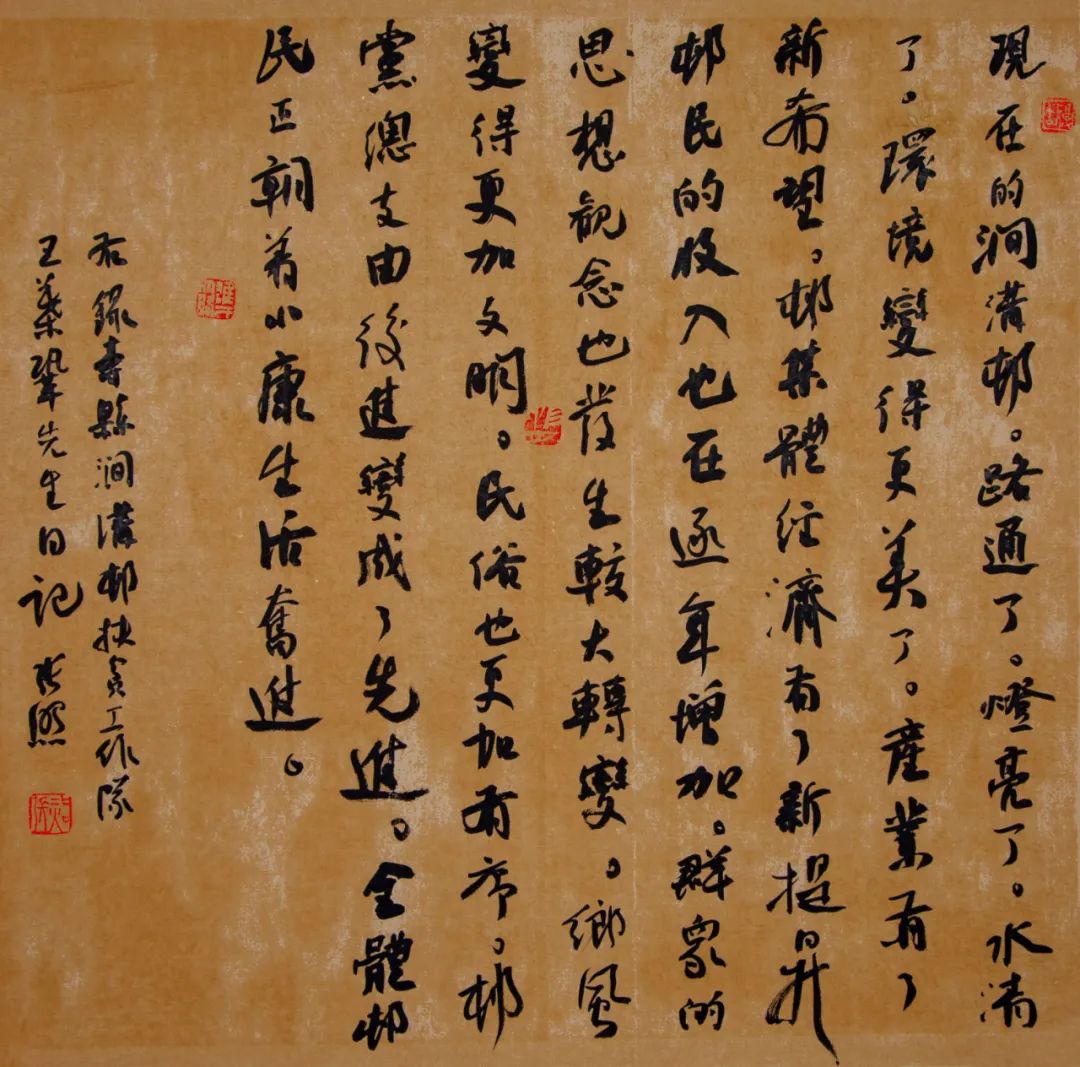 現在的涧溝邨。路通了。燈亮了。水清
了。環境變得更美了。産業有了
新希望。邨集體经濟有了新提昇
邨民的收入也在逐年增加。群眾的
思想觀念也發生較大轉變。鄉風
變得更加文明。民俗也更加有序。邨
黨總支由後進變成了先進。全體邨
民正朝着小康生活奮進。
右録壽縣涧溝邨扶貧工作隊
王業鞏先生日記